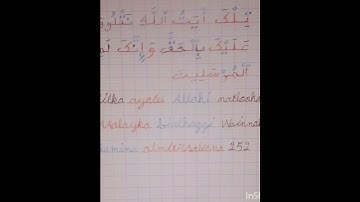 تِلْكَ اٰيٰتُ اللّٰهِ نَتْلُو
عَلَيْكَ بِالْحَقِّ وَاِنَّكَ لَمِ
الْمُرْسَلِيْنَ
ilka ayatu Allahi natlooha
Aalayka bialhaqqi Wainna
amina almursaleena 252